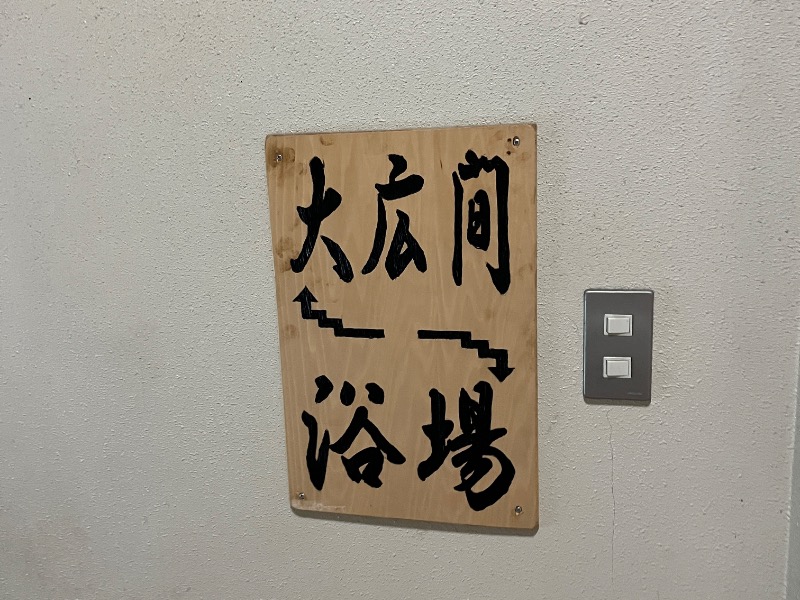 大広間
浴場